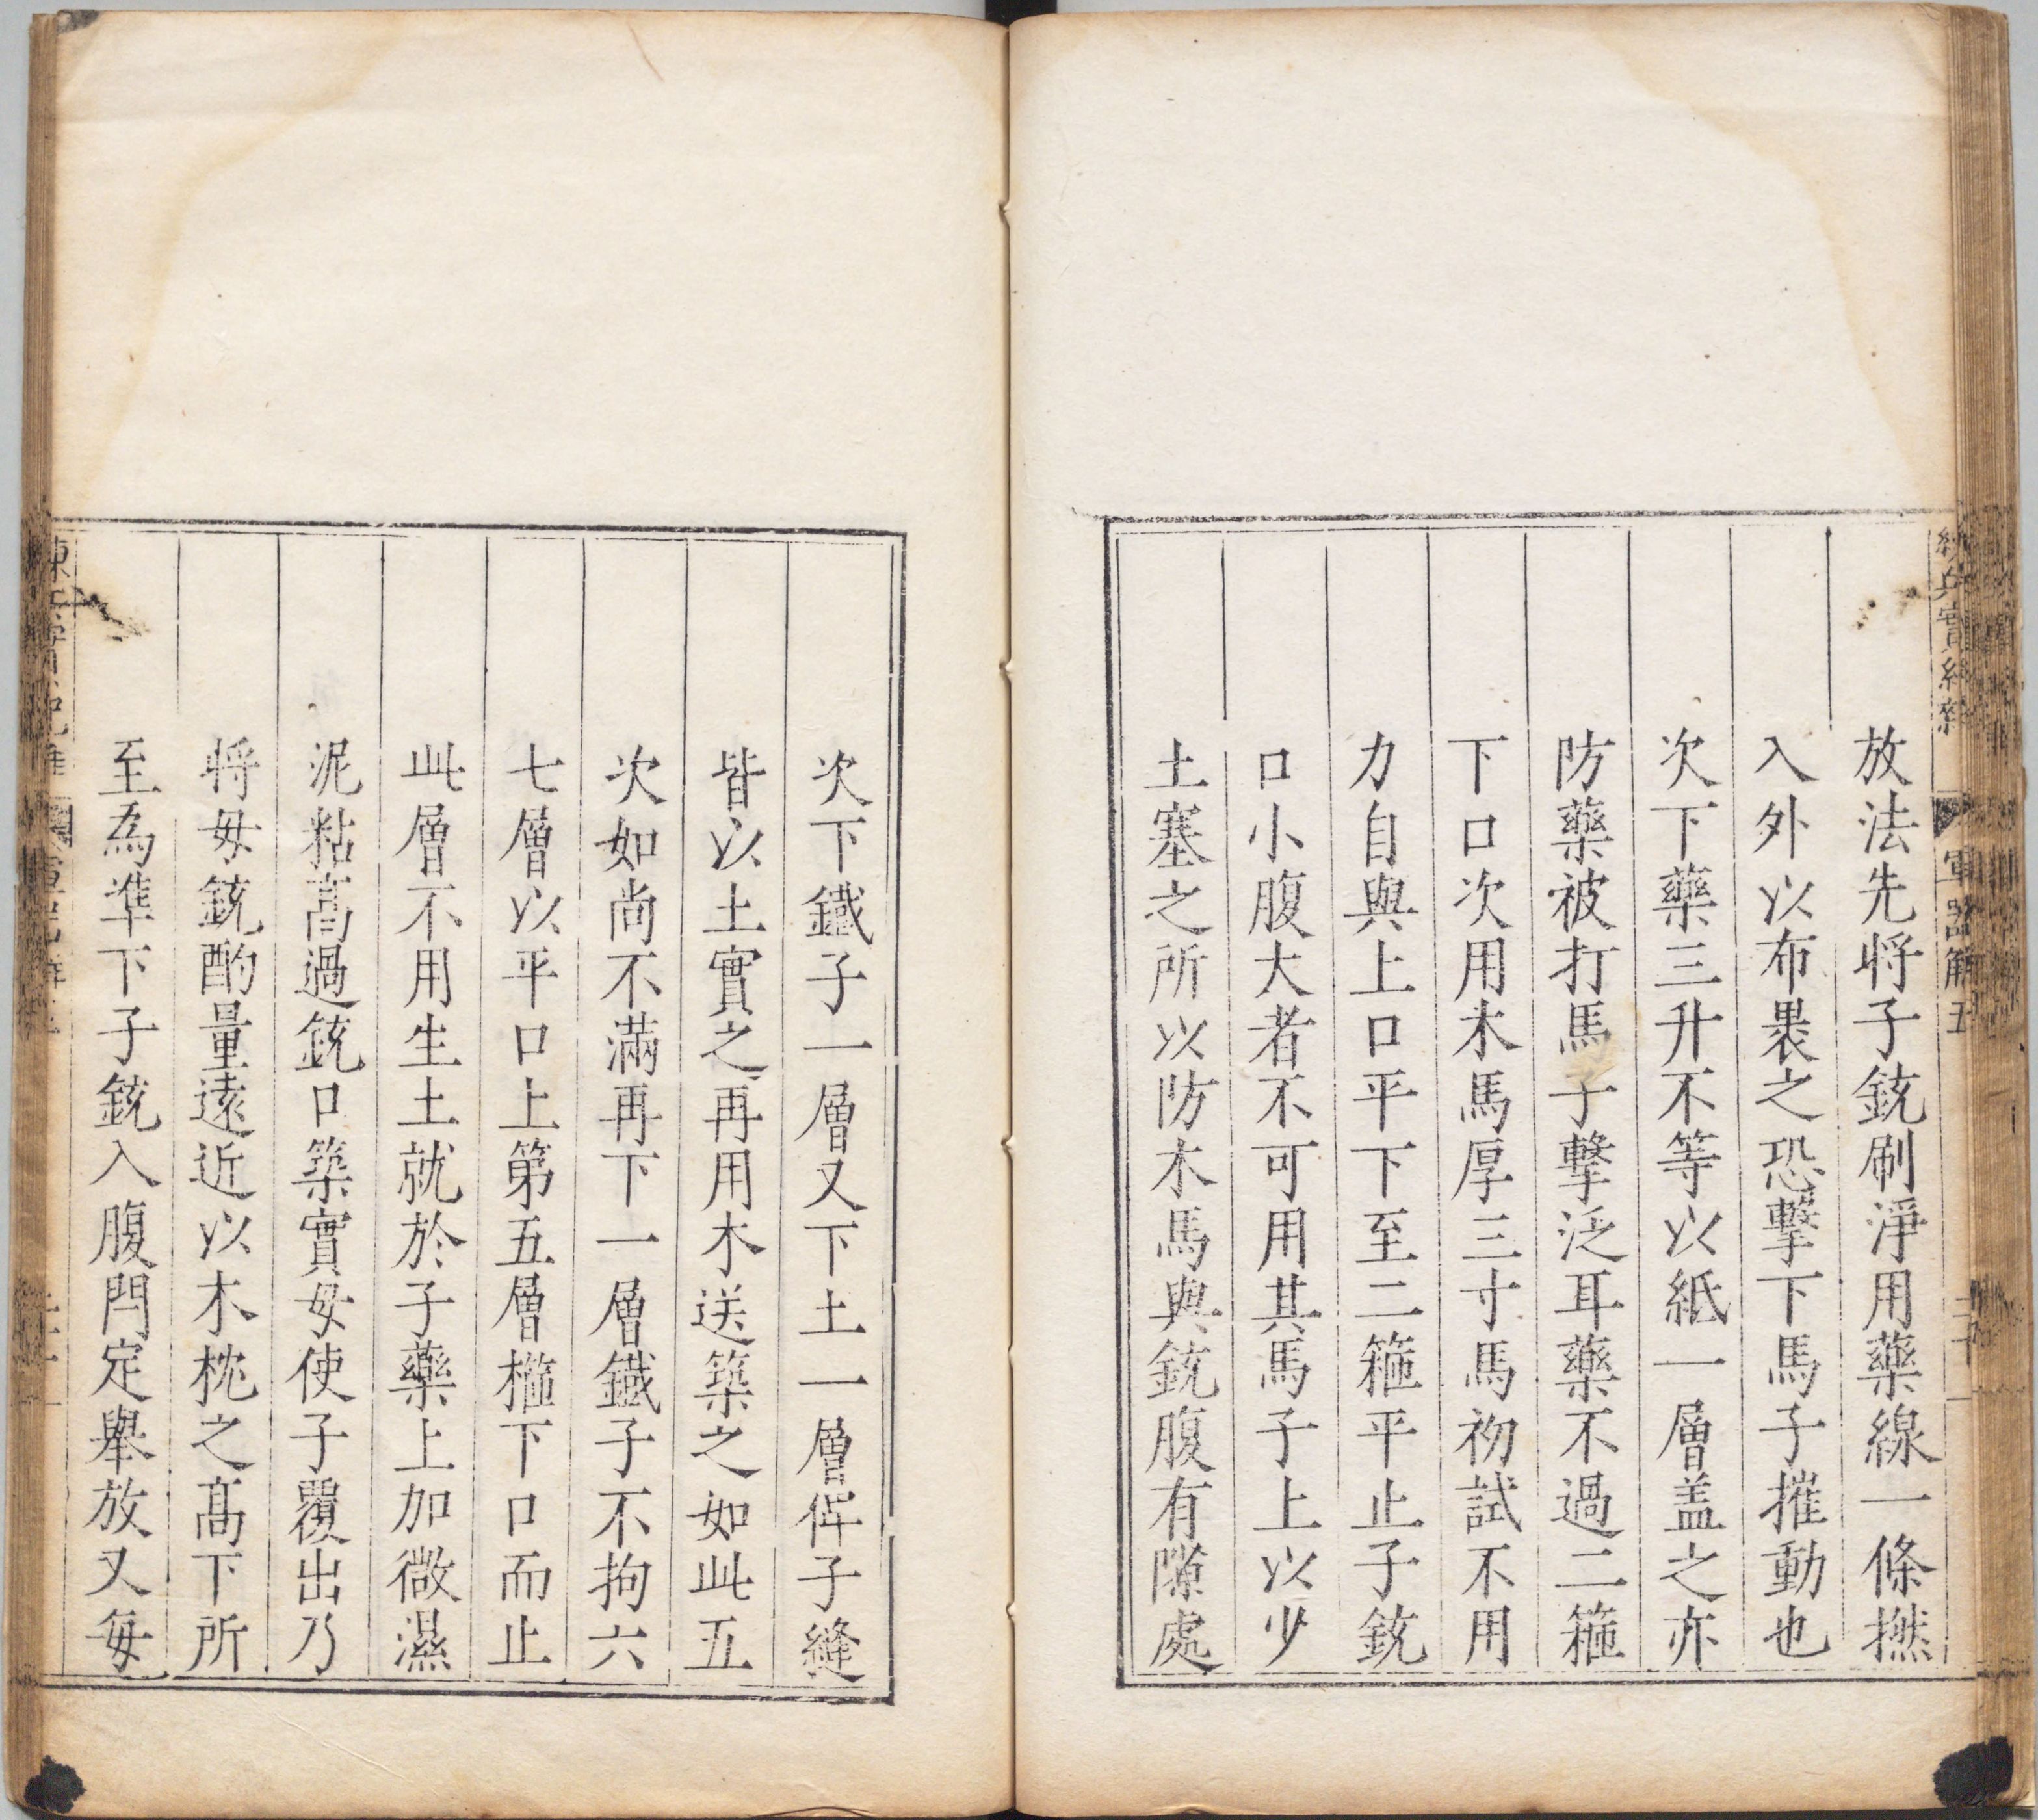 放法先将子銃刷淨用藥線一條撚
入外以布裹之恐擊下馬子摧動也
次下藥三升不等以紙一層盖之亦
防藥被打馬子擊泛耳藥不過二箍
下口次用木馬厚三寸馬初試不用
力自與上口平下至二箍平止子銃
口小腹大者不可用其馬子上以少
土塞之所以防木馬與銃腹有隙處
次下鐵子一層又下土一層俾子縫
皆以土實之再用木送築之如此五
次如尚不滿再下一層鐵子不拘六
七層以平口上第五層箍下口而止
此層不用生土就於子藥上加微濕
泥粘高過銃口築實毋使子覆出乃
将母銃酌量遠近以木枕之高下所
至為準下子銃入腹閂定舉放又每